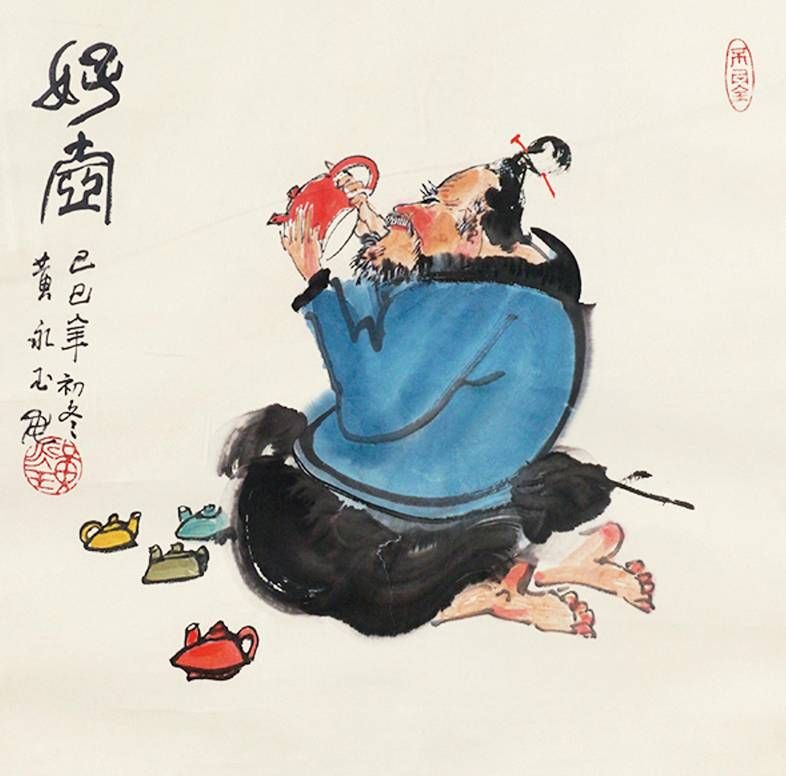 好壺
己巳年初冬
黄永玉